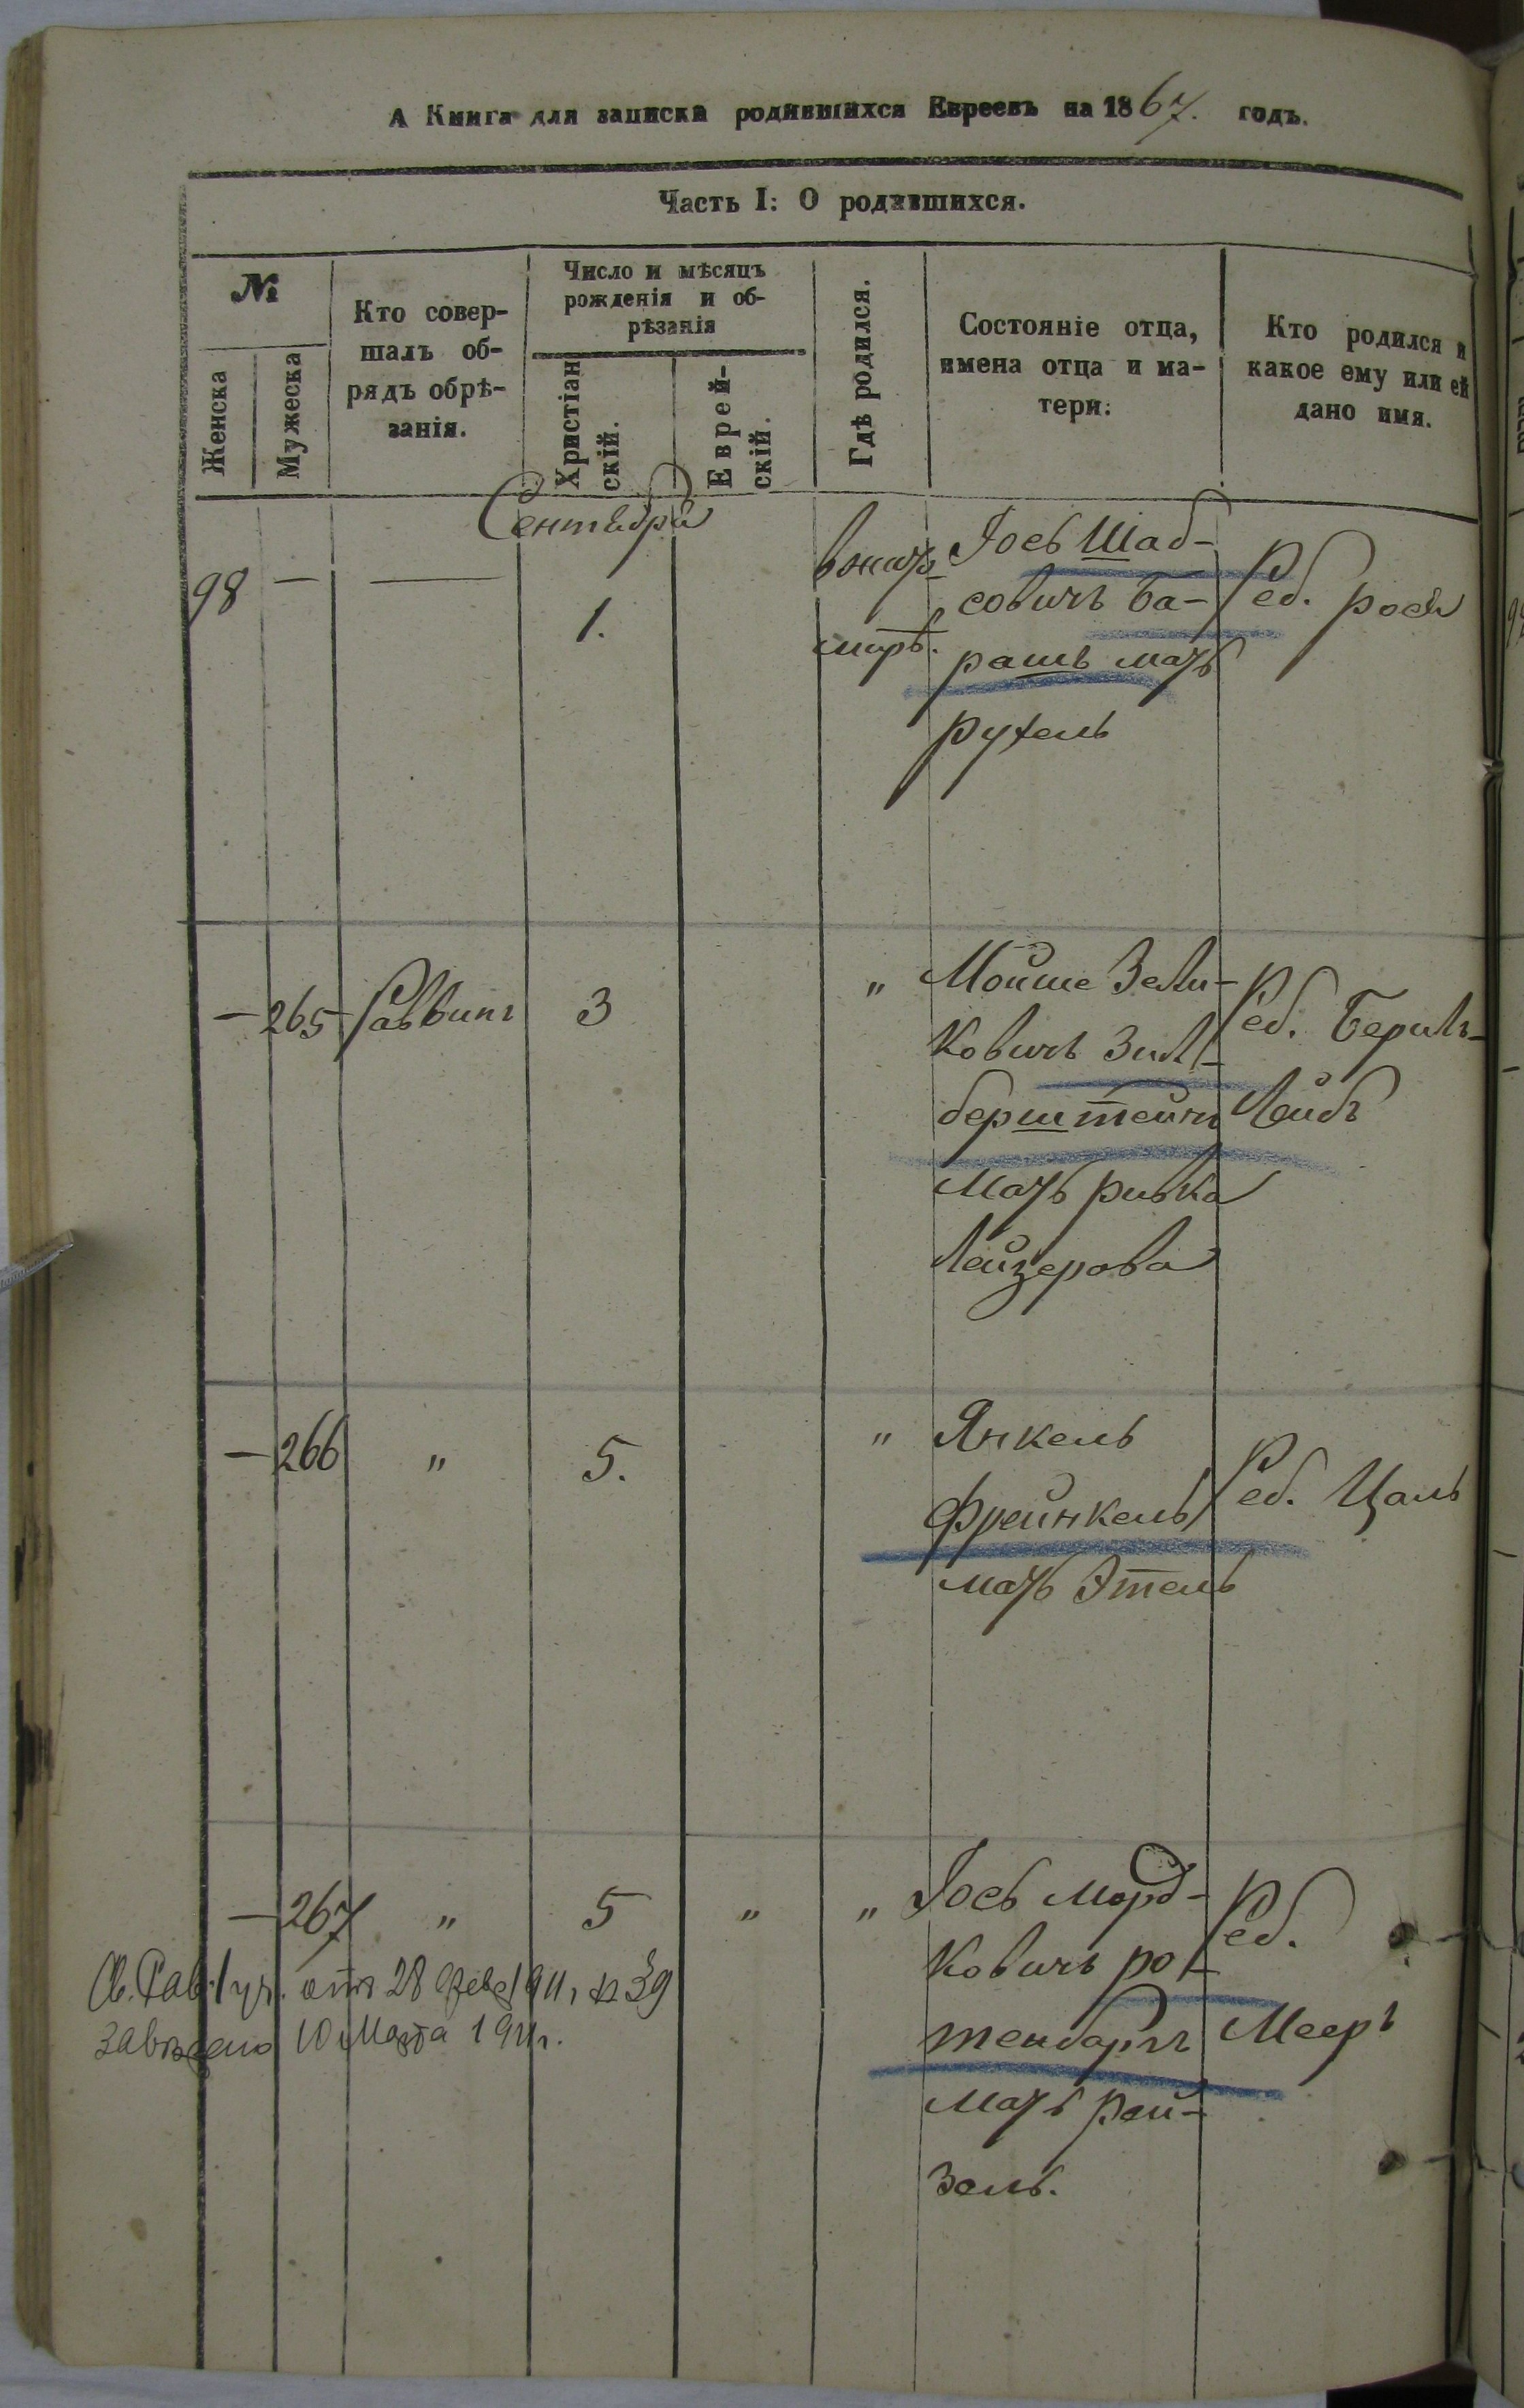 А Книга для записки родившихся Евреевъ на 1867. годъ.
Часть I: О родившихся.
№
Женска
Мужеска
Кто совер-
шалъ об-
рядъ обрѣ-
занія.
Число и мѣсяцъ
рожденія и об-
рѣзанія
Христіан
скій.
Еврей-
скій.
Гдѣ родился.
Состояніе отца,
имена отца и ма-
тери:
Кто родился и
какое ему или ей
дано имя.
Сентября
98 — — 1.
Іось Шаб-
совичъ Ба-
рашъ мать
рухель
Реб. рося
— 265 Раввинъ 3 „
Мойше Зели-
ковичъ Зил-
берштейнъ
мать ривка
Лейзерова
Реб. Бериль-
Лейбъ
— 266 „ 5. „
Янкель
Фрейнкель
мать Этель
Реб. Цаль
— 267 „ 5 „ „
Іось Морд-
ковичъ ро-
тенбаргъ
мать рей-
зель.
Реб.
Мееръ
отъ 28 фев 1911, № 39
10 Марта 1911г.